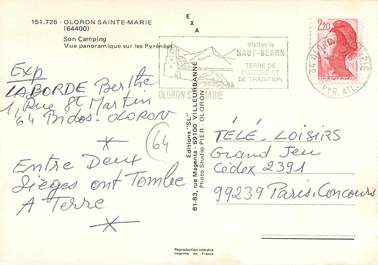 151.726 - OLORON SAINTE-MARIE
(64400)
Son Camping
Vue panoramique sur les Pyrénées
Exp
LABORDE Berthe
1, Rue St Martin
64 Bidos-OLORON
64
Entre Deux
Sièges ont Tombe
A Terre
EXA
Editions "SL"
81-83, rue Magenta - 69100 VILLEURBANNE
Photo Studio PIER - OLORON
Reproduction interdite
Imprimé en France
Visitez le
HAUT-BEARN
TERRE DE
CULTURE ET
DE TRADITION
OLORON-STE-MARIE
2,20
64 OLORON
PYR. ATL.
TÉLÉ-LOISIRS
Grand Jeu
Cédex 2391
99239 Paris-Concours